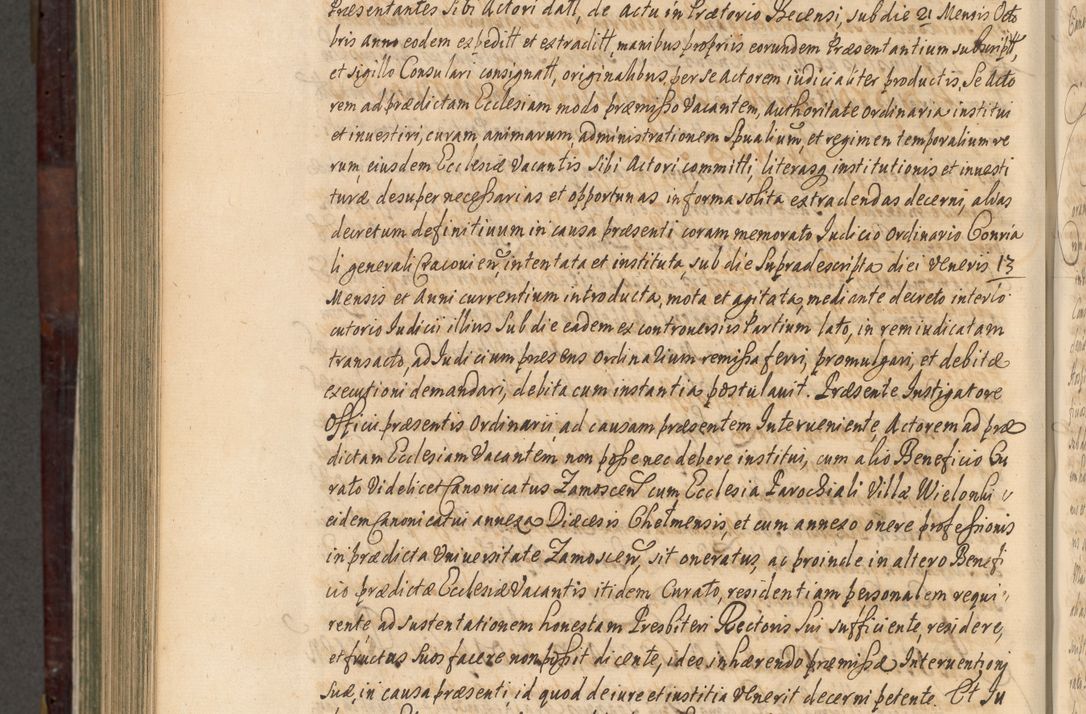 Præsentantes sibi Actori datt, de actu in Prætorio Becensi, sub die 21 Mensis Octo
bris anno eodem expeditt et extraditt, manibus propriis eorundem Præsentantium subscriptt,
et sigillo Consulari consignatt, originalibus per se actorem iudicialiter productis, se Acto
rem ad prædictam Ecclesiam modo præmisso vacantem, authoritate ordinaria institui
et inuestiri, curam animarum, administrationem spualium, et regimen temporalium re
rum, eiusdem Ecclesiæ vacantis sibi Actori committi, literasq institutionis et inuesti
turæ desuper necessarias et opportunas in forma solita extradendas decerni, alias
decretum definitiuum in causa præsenti coram memorato Judicio ordinario Consria
li generali Cracouien, intentata et instituta, sub die supradescripta diei Veneris 13
Mensis et Anni currentium introducta, mota et agitata, mediante decreto interlo
cutorio Iudicii illius sub die eadem ex controuersiis Partium lato, in rem iudicatam
transacto, ad Iudicium præsens ordinarium remissa ferri, promulgari, et debitæ
executioni demandari, debita cum instantia postulauit. Præsente Instigatore
Officii præsentis Ordinarii, ad causam præsentem Interueniente, Actorem ad præ
dictam Ecclesiam Vacantem non posse nec debere institui, cum alio Beneficio Cu
rato videlicet Canonicatus Zamoscen cum Ecclesia Parochiali Villæ Wielonki
eidem Canonicatui annexa Diæcesis Chelmensis, et cum annexo onere professionis
in prædicta Vniuersitate Zamoscen, sit oneratus, ac proinde in altero Benefi
cio prædictæ Ecclesiæ Vacantis itidem Curato, residentiam personalem requi
rente ad sustentationem honestam Presbiteri Rectoris sui sufficiente, residere,
et fructus suos facere non possit dicente, ideo inhærendo præmissæ Interuentioni
suæ, in causa præsenti, id quod de iure et iustitia venerit decerni petente. Et Iu